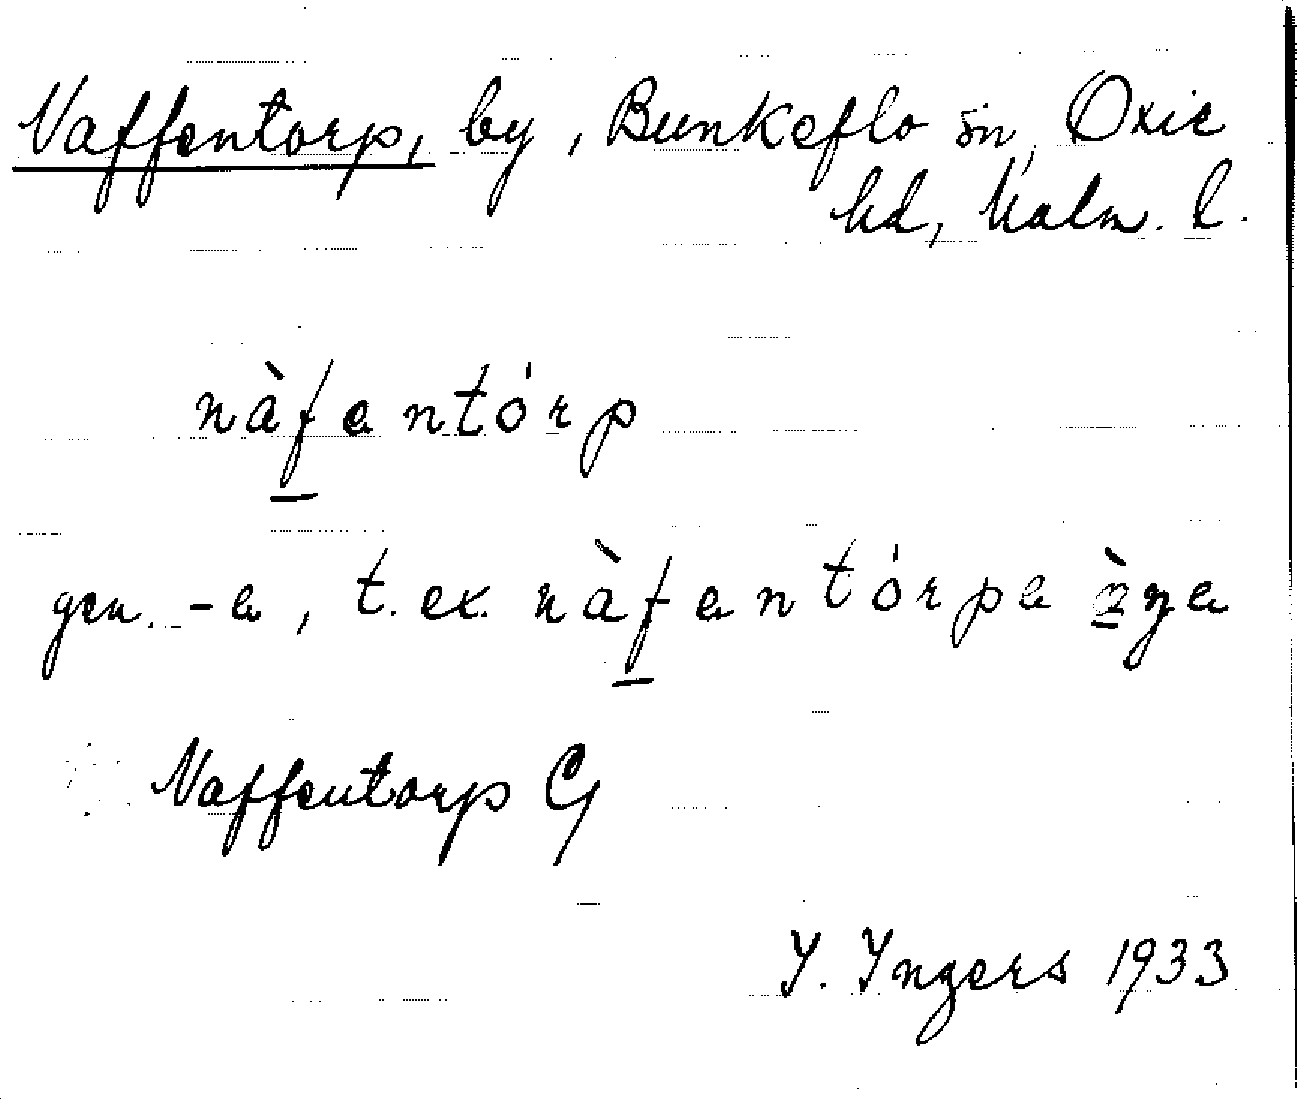 Naffentorp, by, Bunkeflo sn, Oxie
hd, Malm. l.
nàfantórp
gen. -a, t. ex. nàfantórpa
Naffentorp
I. Ingers 1933